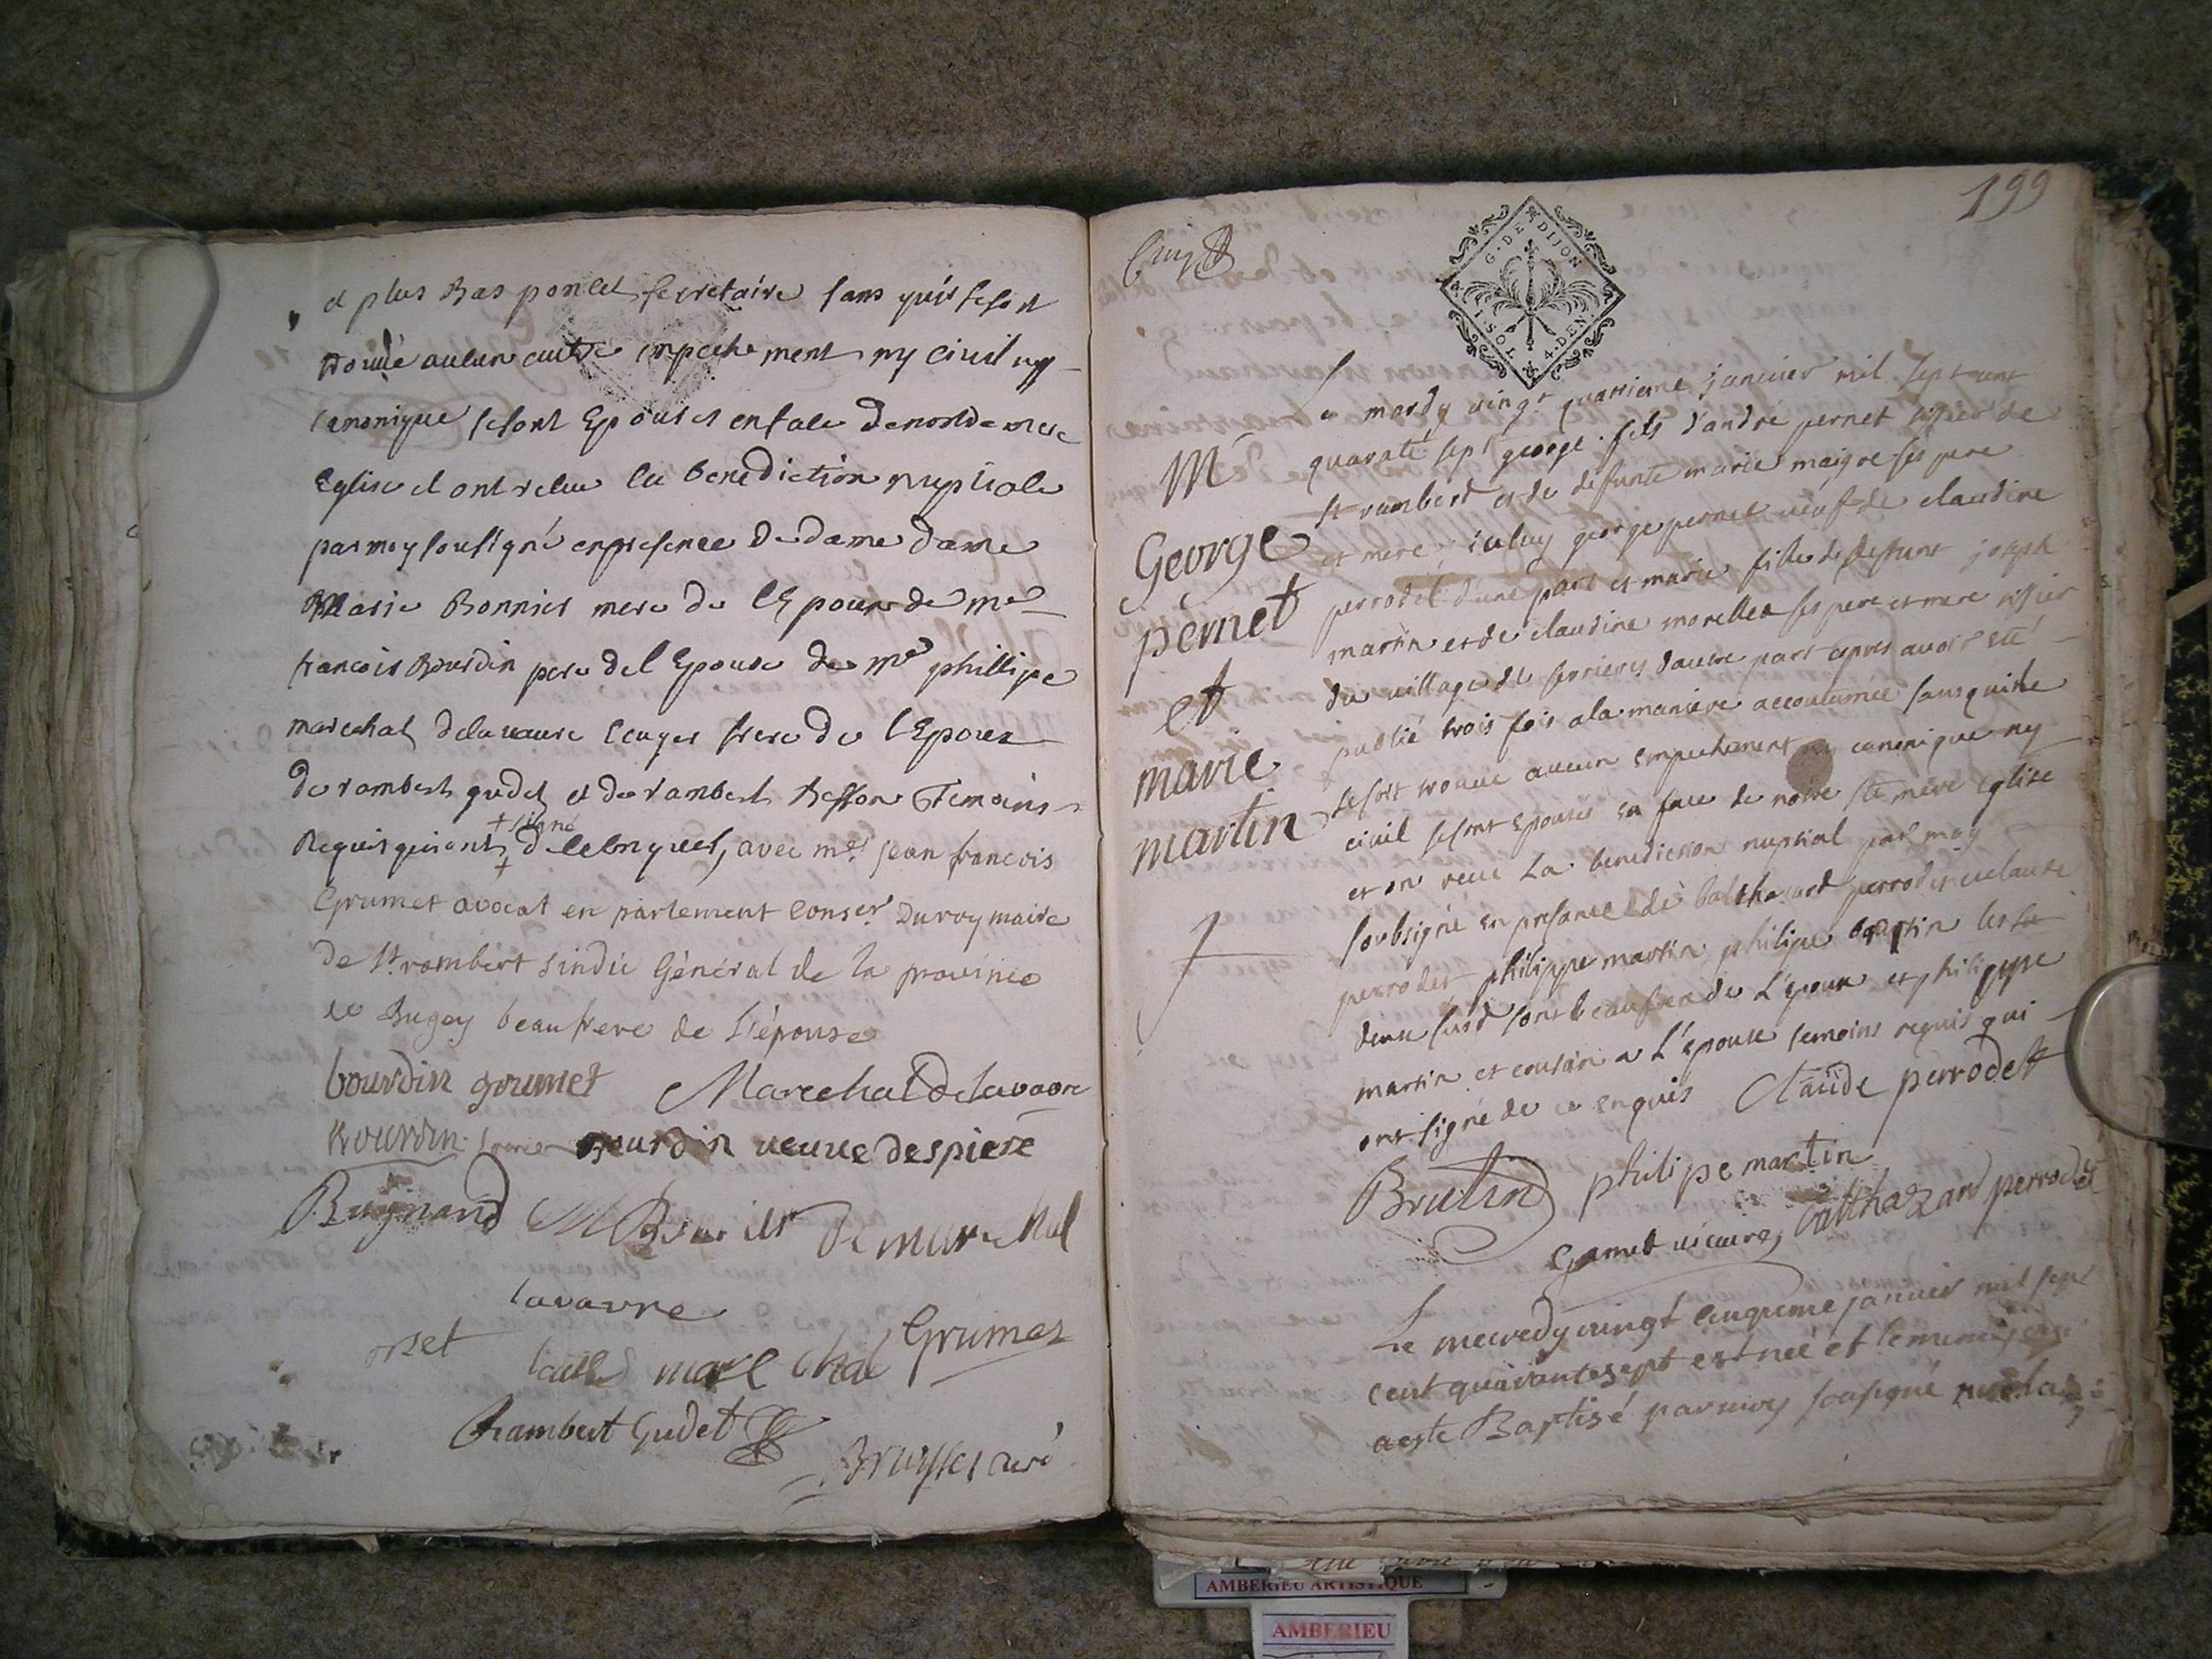 et plus Bas poncet secretaire sans quis se soit
trouvé aulcun autre empeche ment ny civil ny
canonique se sont Epouses en face de nostre mere
Eglise et ont relue la benediction nuptiale
par moy sousigné en presence de dame dame
Marie Bonnier mere de l'Epoux de mre
francois Bourdin pere de l'Epouse de mre phillipe
marechal delavavre Ecuyer frere de l'Epoux
de rambert gudet et de rambert Besson Temoins
+ signé
Requis qui ont + de ce enquels, avec mre jean francois
Grumet avocat en parlement conser du roy maire
de st rambert sindic Général de la province
de Bugey beaufrere de L'épouse
bourdin grumet Marechal Delavavre
Bourdin bourdin veuve despiere
Buynand De marechal
lavavre
orset marechal Grumet
Rambert Gudet
Bruysset curé
199
G. DE DIJON
1. SOL 4. DEN.
Le mardy vingt quatrieme janvier mil sept cent
quarate sept george fils d'andré pernet tissier de
st rambert et de defunte marie maigre ses pere
et mere iceluy george pernet veuf de claudine
perrodet d'une part et marie fille de deffunt joseph
martin et de claudine morellet ses pere et mere tissier
du village de serrieres d'autre part apres avoir eté
publié trois fois a la maniere accoutumée sans qu'il ne
se soit trouvé aucun empechement ny canonique ny
civil se sont epousés en face de notre ste mere eglise
et on receu La benediction nuptial par moy
soubsigné en presance de balthasard perrodet claude
perrodet philippe martin philipe martin les
deux susd sont beaufrere de L'epoux et philippe
martin et cousin a L'epouse temoins requis qui
ont signé de ce enquis Claude perrodet
Brutin philipe martin
Garnet vicaire, balthazard perrodet
M
George
pernet
et
marie
martin
Le mecredy vingt cinquieme janvier mil sept
cent quarante sept est neé et le meme jour
a esté Baptisé par moy sousigné
AMBERIEU ARTISTIQUE
AMBERIEU